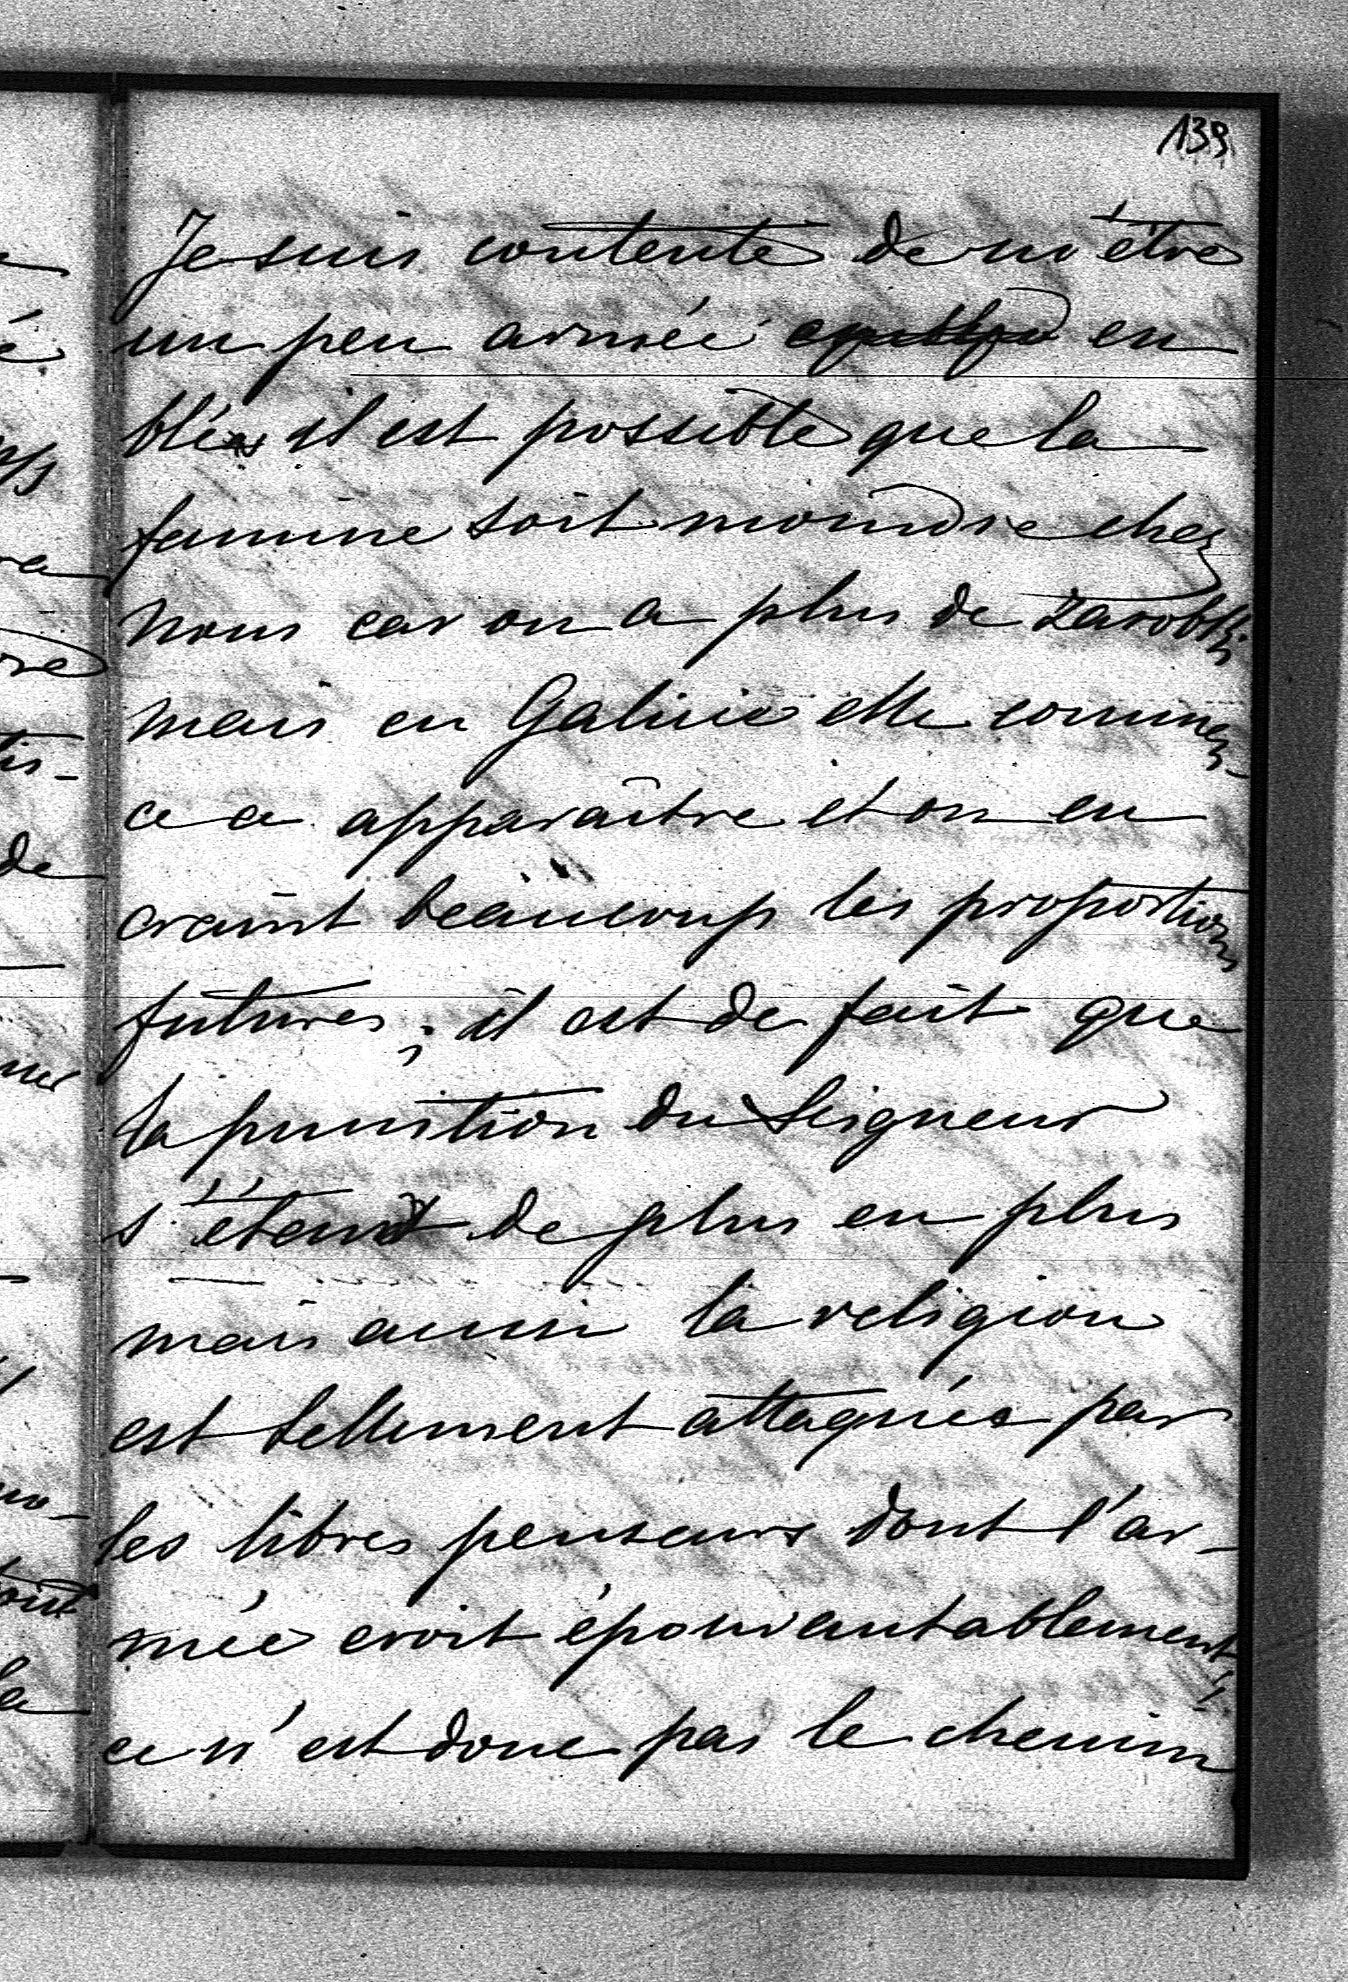 139
Je suis contente de m'être
un peu armée en
blés il est possible que la
famine soit moindre chez
nous car on a plus de zarobki
mais en Galicie elle commen-
ce a apparaître et on en
craint beaucoup les proportions
futures ; il est de fait que
la punition du Seigneur
s'étend de plus en plus
mais aussi la religion
est tellement attaquée par
les libres penseurs dont l'ar-
mée croit épouvantablement
ce n'est donc pas le chemin